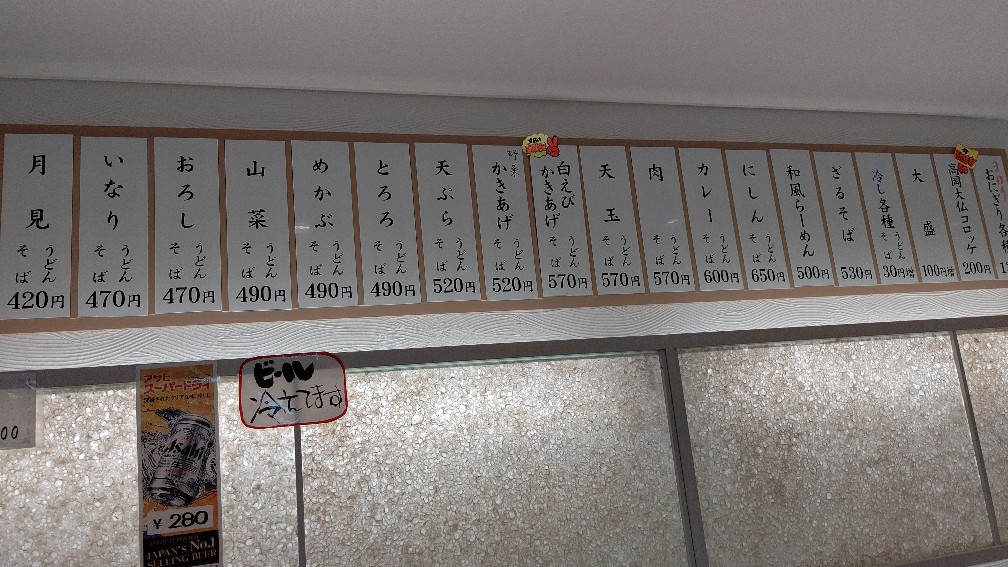 月見
うどん
そば
420円
いなり
うどん
そば
470円
おろし
うどん
そば
470円
山菜
うどん
そば
490円
めかぶ
うどん
そば
490円
とろろ
うどん
そば
490円
天ぷら
うどん
そば
520円
野菜
かきあげ
うどん
そば
520円
白えび
かきあげ
うどん
そば
570円
天玉
うどん
そば
570円
肉
うどん
そば
570円
カレー
うどん
そば
600円
にしん
うどん
そば
650円
和風らーめん
500円
ざるそば
530円
冷し各種
うどん
そば
30円増
大盛
100円増
高岡大仏コロッケ
200円
おにぎり各種
ビール
冷えてます
アサヒ
スーパードライ
Asahi
¥ 280
JAPAN'S No.1
SELLING BEER
00